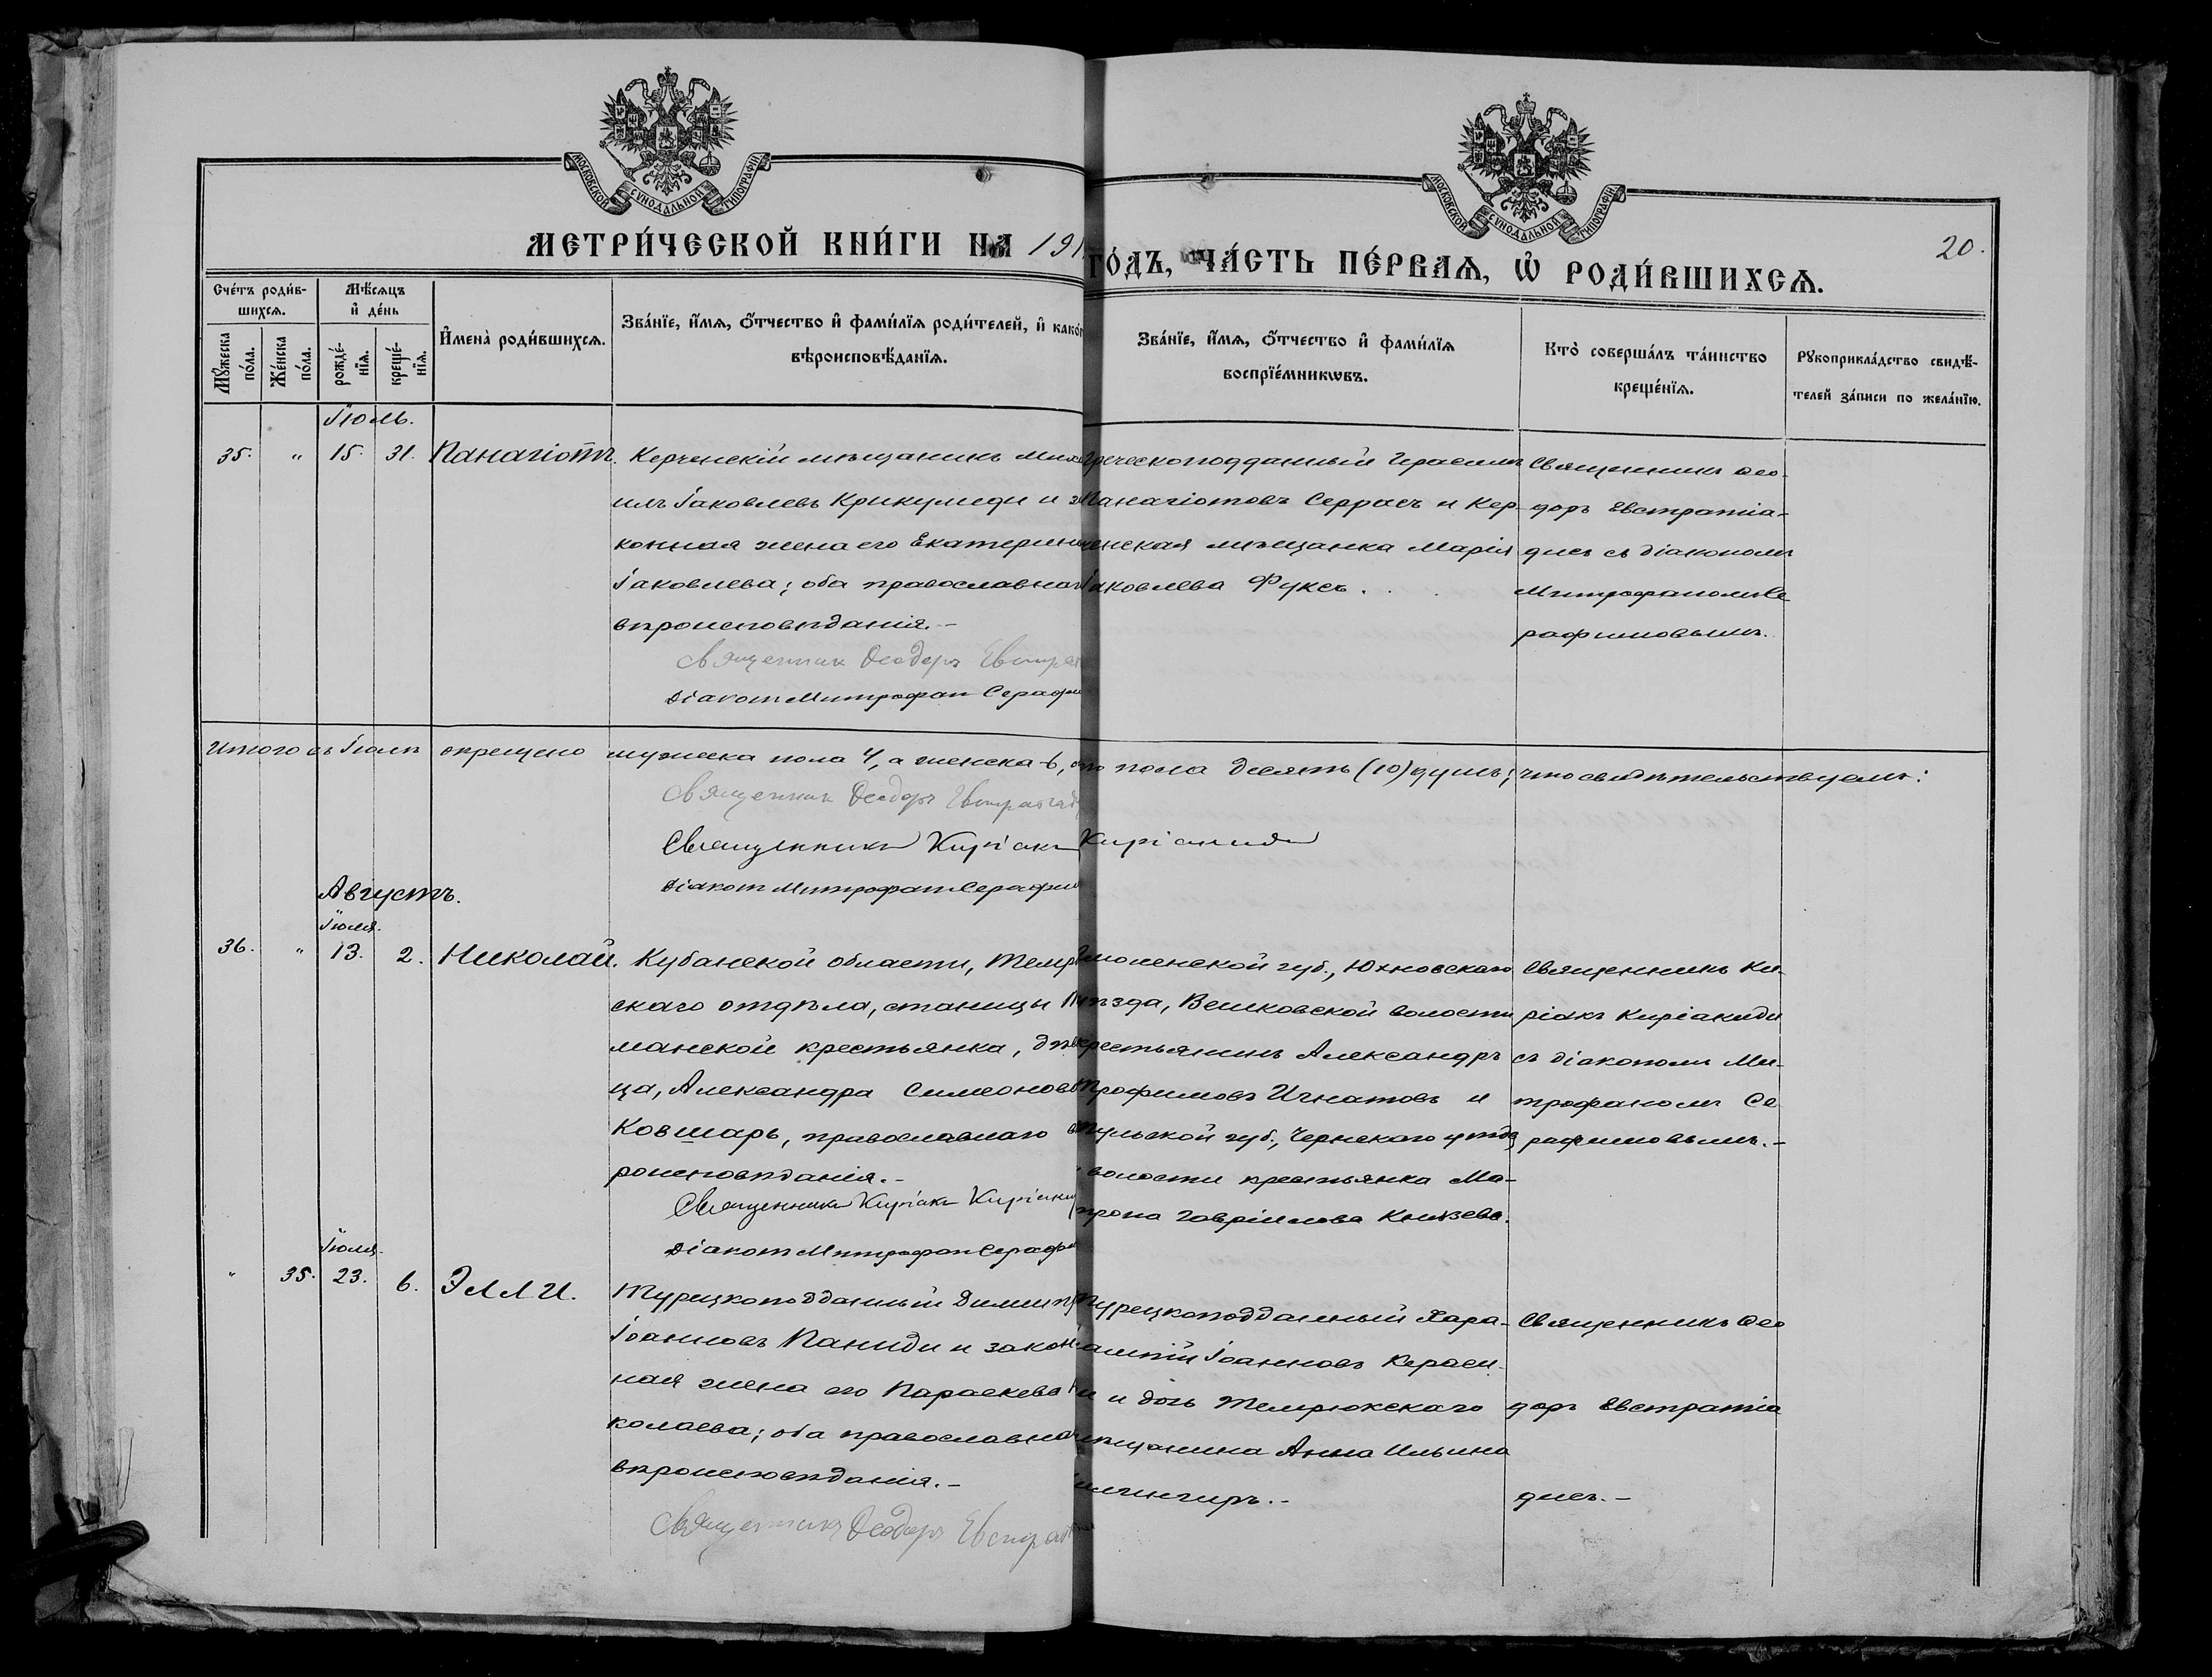 МОСКОВСКОЙ СѴНОДАЛЬНОЙ ТИПОГРАФІИ
МОСКОВСКОЙ СѴНОДАЛЬНОЙ ТИПОГРАФІИ
20.
МЕТРИ́ЧЕСКОЙ КНИ́ГИ НА 191
ГО́ДЪ, ЧА́СТЬ ПЕ́РВАѦ, Ѡ҆ РОДИ́ВШИХСѦ.
Сче́тъ роди́в-
шихсѧ.
Мꙋ́жеска по́ла.
Же́нска по́ла.
Мѣ́сѧцъ
и҆ де́нь
рожде́-
нїѧ.
креще́-
нїѧ.
И҆мена̀ роди́вшихсѧ.
Зва́нїе, и҆́мѧ, ѻ҆́тчество и҆ фами́лїѧ роди́телей, и҆ како́г
вѣроисповѣ́данїѧ.
Зва́нїе, и҆́мѧ, ѻ҆́тчество и҆ фами́лїѧ
воспрїе́мникѡвъ.
Кто̀ соверша́лъ та́инство
креще́нїѧ.
Рꙋкоприкла́дство свидѣ́-
телей за́писи по жела́нїю.
Іюль.
35. " 15. 31. Панагіотъ.
Керченскій мѣщанинъ Миха
илъ Іаковлевъ Крикулиди и за
конная жена его Екатерина
Іаковлева; оба православнаго
вѣроисповѣданія.-
Священник Ѳеодоръ Евстра
Діакон Митрофан Серафи
греческоподданный Герасимъ
Панагіотовъ Серрасъ и Кер-
ченская мѣщанка Марія
Іаковлева Фуксъ.
Священникъ Ѳео-
доръ Евстратіа-
дисъ съ діакономъ
Митрофаномъ Се
рафимовымъ.
Итого въ Іюлѣ окрещено мужеска пола 4, а женска-6, обо
го пола десять (10) душъ; что свидѣтельствуемъ:
Священник Ѳеодоръ Евстратіад
Священникъ Киріакъ Киріакиди
Діакон Митрофан Серафим
Августъ.
Іюля.
36. " 13. 2. Николай.
Кубанской области, Темрю
скаго отдѣла, станицы
манской крестьянка, дѣви
ца, Александра Симеонова
Ковшарь, православнаго вѣ
роисповѣданія.-
Священникъ Киріакъ Киріаки
Діакон Митрофан Серафи
Смоленской губ., Юхновскаго
уѣзда, Вешковской волости
крестьянинъ Александръ
Трофимовъ Игнатовъ и
Тульской губ., Чернскаго уѣзда,
волости крестьянка Ма-
трона Гавріилова Князева.
Священникъ Ки-
ріакъ Киріакиди
съ діакономъ Ми-
трофаномъ Се
рафимовымъ.-
Іюля.
" 35. 23. 6. Элли.
Турецкоподданный Димитр
Іоанновъ Паниди и закон
ная жена его Параскева Ни
колаева; оба православнаго
вѣроисповѣданія.-
Священникъ Ѳеодоръ Евстрат
Турецкоподданный Хара-
лампій Іоанновъ Кераси-
и дочь Темрюкскаго
мѣщанина Анна Ильина
Священникъ Ѳео
доръ Евстратіа
дисъ.-